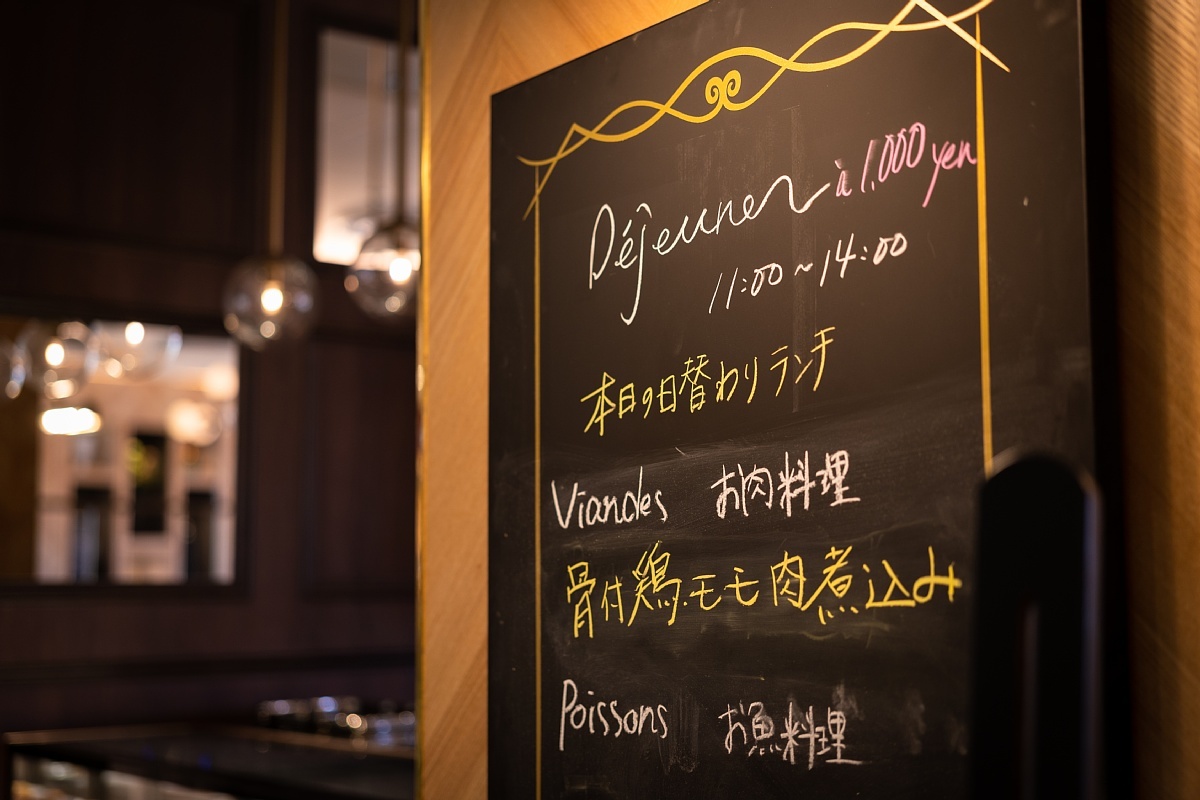 Déjeuner à 1,000 yen
11:00~14:00
本日の日替わりランチ
Viandes お肉料理
骨付鶏モモ肉煮込み
Poissons お魚料理